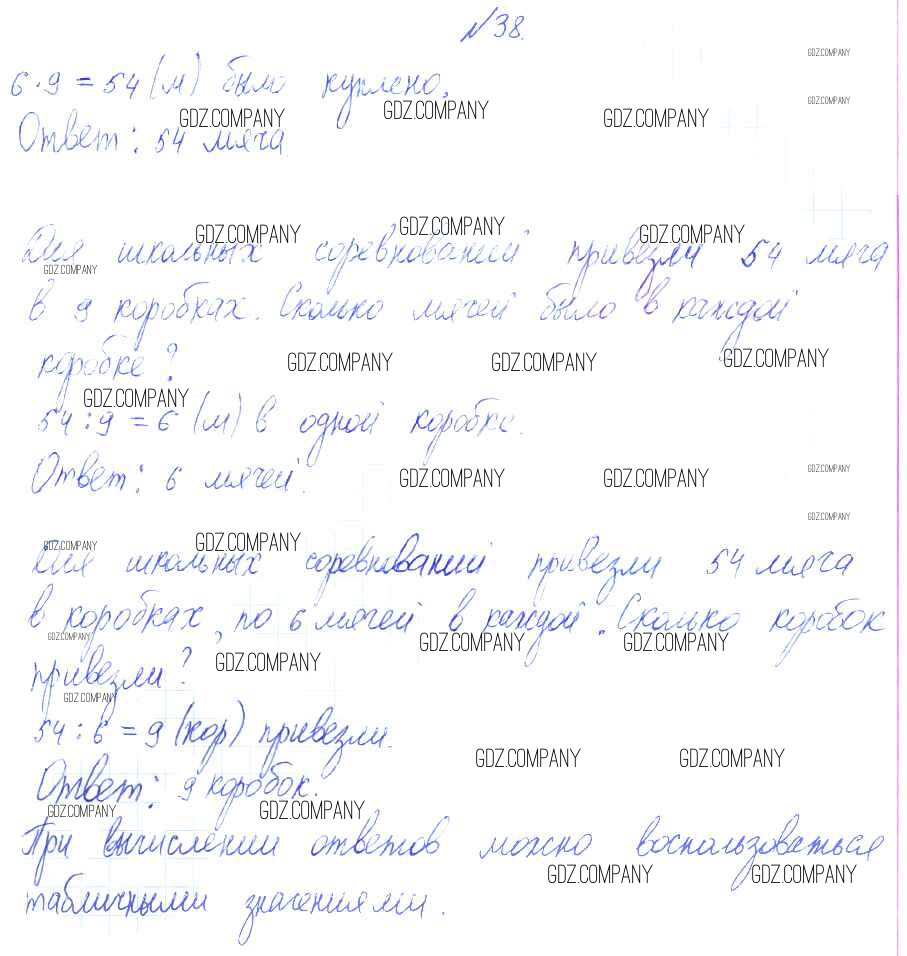 №38.
GDZ.COMPANY
6·9=54 (м) было куплено.
GDZ.COMPANY
GDZ.COMPANY GDZ.COMPANY GDZ.COMPANY
Ответ: 54 мяча
GDZ.COMPANY GDZ.COMPANY GDZ.COMPANY
Для школьных соревнований привезли 54 мяча
GDZ.COMPANY
в 9 коробках. Сколько мячей было в каждой
коробке?
GDZ.COMPANY GDZ.COMPANY GDZ.COMPANY
GDZ.COMPANY
54:9=6 (м) в одной коробке.
Ответ: 6 мячей.
GDZ.COMPANY GDZ.COMPANY GDZ.COMPANY
GDZ.COMPANY
GDZ.COMPANY GDZ.COMPANY
Для школьных соревнований привезли 54 мяча
в коробках, по 6 мячей в каждой. Сколько коробок
GDZ.COMPANY GDZ.COMPANY GDZ.COMPANY
привезли?
GDZ.COMPANY
GDZ.COMPANY
54:6=9 (кор) привезли.
GDZ.COMPANY GDZ.COMPANY
Ответ: 9 коробок.
GDZ.COMPANY GDZ.COMPANY
При вычислении ответов можно воспользоваться
GDZ.COMPANY GDZ.COMPANY
табличными значениями.